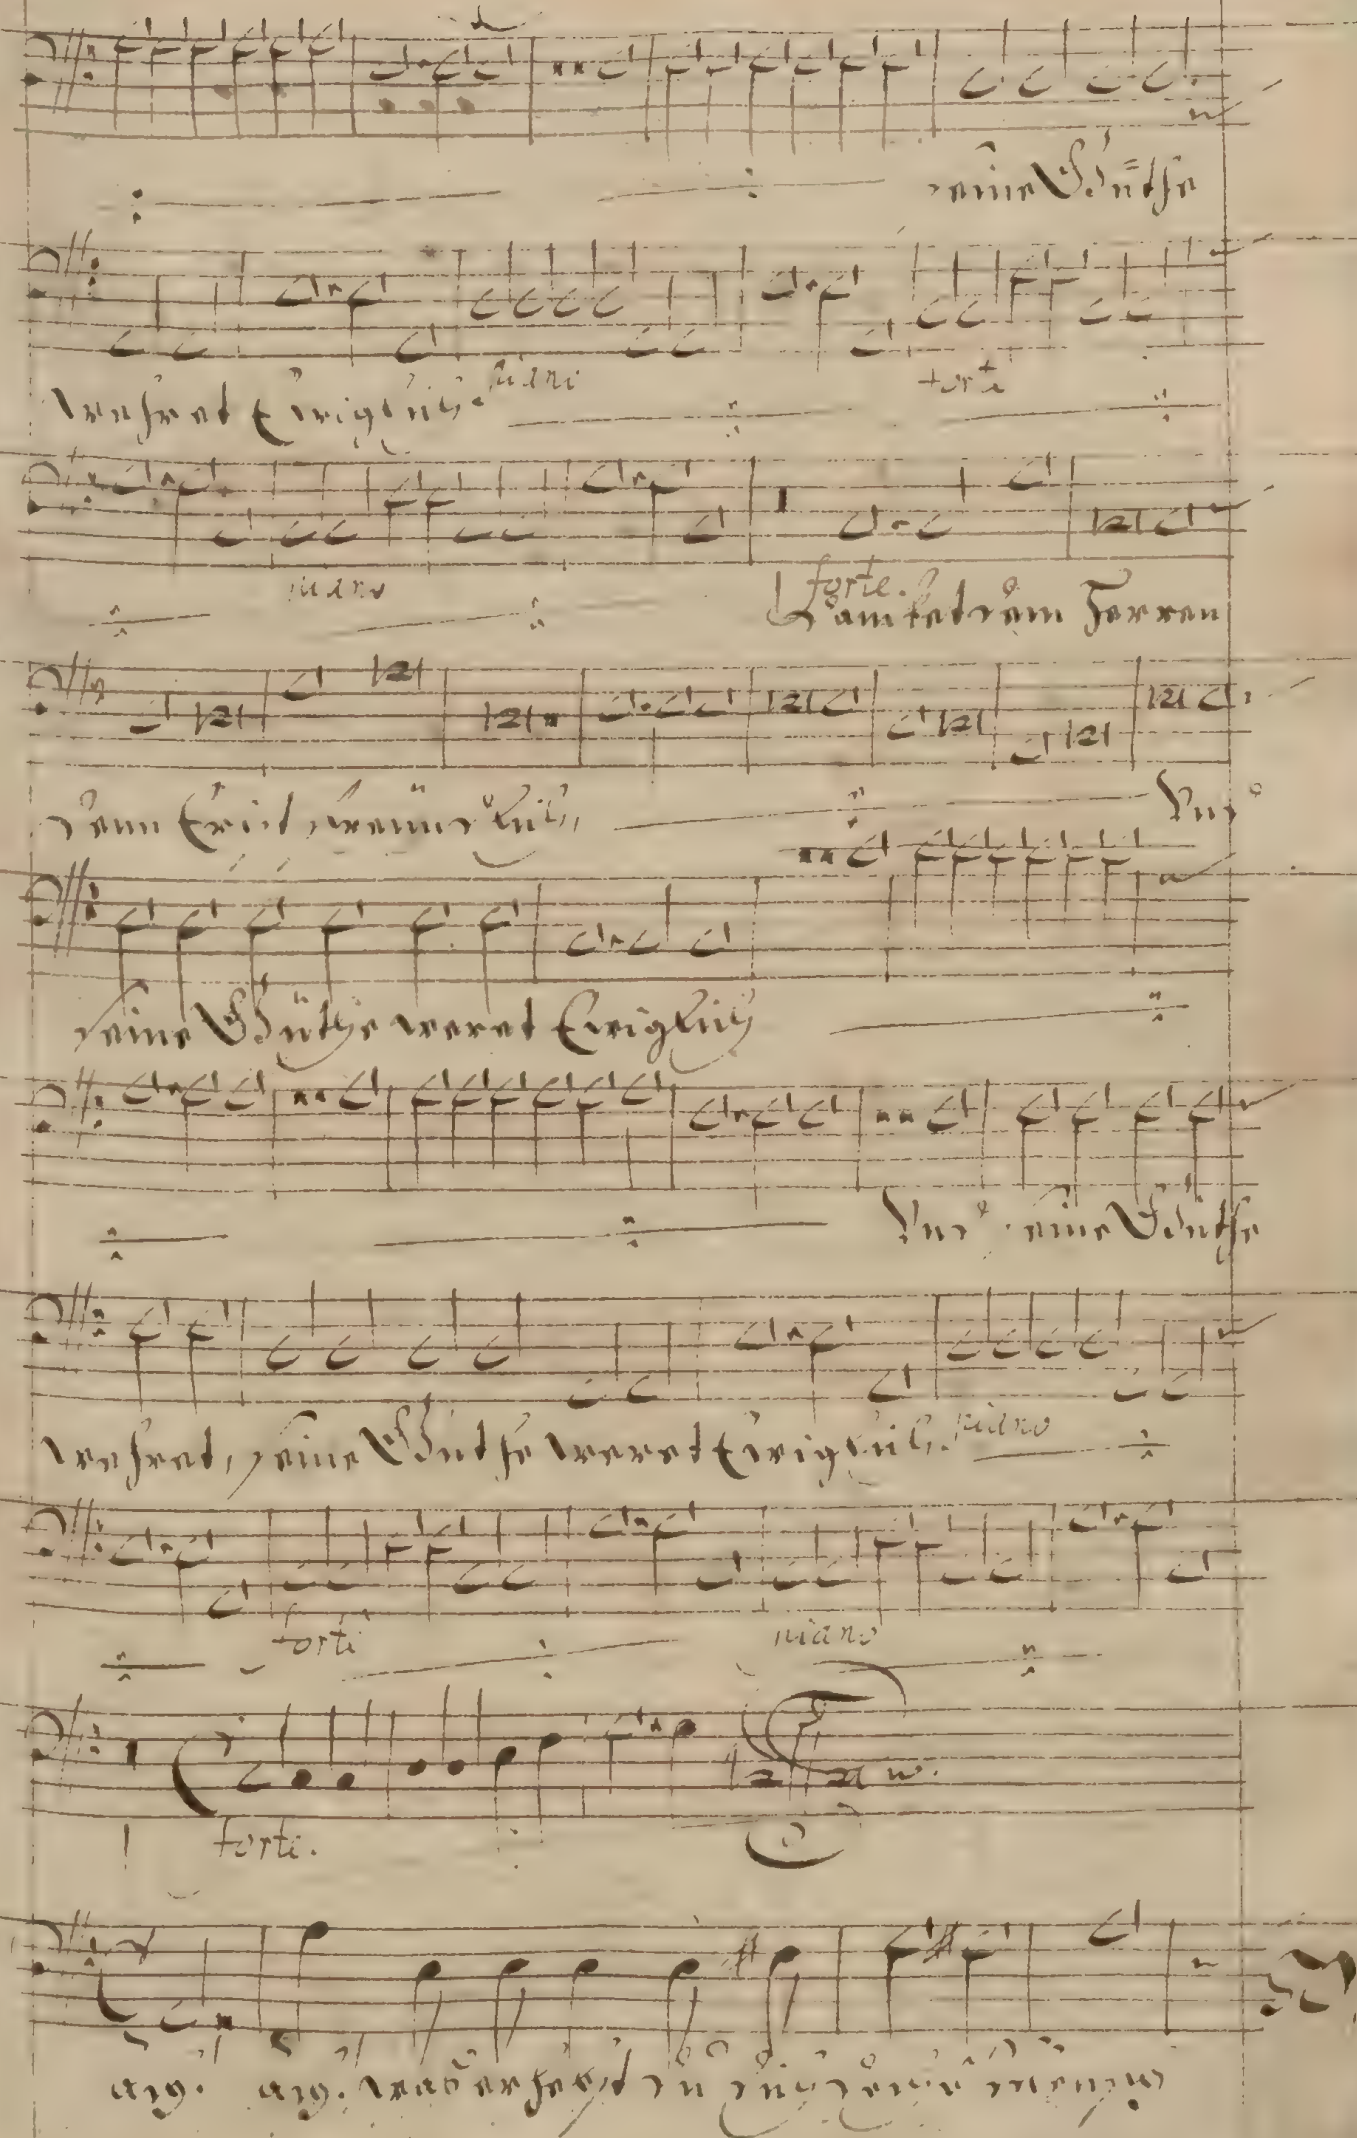 seine Güthe
wehret Ewiglich. piano
forte
piano
forte.
Danket dem Herren
denn Er ist freundlich,
Und
seine Güthe weret Ewiglich
Und seine Güthe
wehret, seine Güthe weret Ewiglich. piano
forte
piano
forte.
ach. ach. was erhebst du dich